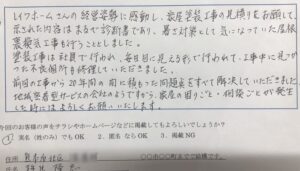 レイフホームさんの経営姿勢に感動し、家屋塗装工事の見積りをお願いして
示された内容はまるで診断書であり、暑さ対策として気になっていた屋根
裏換気工事も行うこととしました。
塗装工事は社員で行われ、毎日目に見える形で行われて、工事中に見つか
った不良個所も修理していただきました。
前回の工事から20年間の間に積もった問題点をすべて解決していただきました
地域密着型サービスの会社のようですから、家屋の困りごと・相談ごとが発生
した時にはよろしくお願いいたします。
今回のお客様の声をチラシやホームページなどに掲載してもよろしいでしょうか?
① 実名(姓のみ)でもOK ２．匿名ならOK ３．掲載NG
住所 熊本市北区 〇〇市〇〇町まででで結構です。
氏名